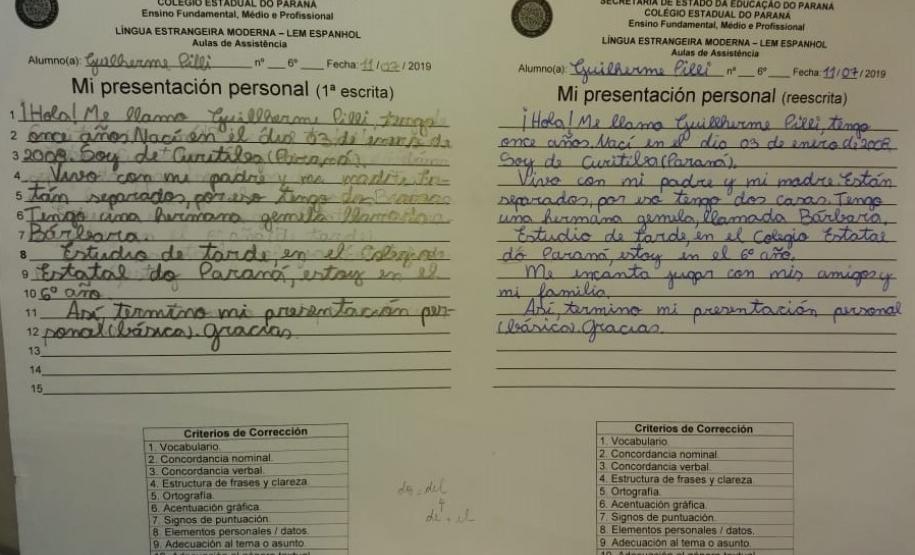 COLEGIO ESTADUAL DO PARANÁ
Ensino Fundamental, Médio e Profissional
LÍNGUA ESTRANGEIRA MODERNA – LEM ESPANHOL
Aulas de Assistência
Alumno(a): Guilherme Pilli nº 6º Fecha: 11/07/2019
Mi presentación personal (1ª escrita)
1 ¡Hola! Me llamo Guillherme Pilli, tengo
2 once años. Nací en el día 03 de de
3 2008. Soy de Curitiba (Paraná).
4 Vivo con mi padre y ma madre. Es-
5 tán separados, por eso tengo
6 Tengo una hermana gemela llamada
7 Bárbara.
8 Estudio de tarde, en el Colegio
9 Estatal do Paraná, estoy en el
10 6º año.
11 Así, termino mi presentación per-
12 sonal (básica). Gracias.
13
14
15
Criterios de Corrección
1. Vocabulario.
2. Concordancia nominal.
3. Concordancia verbal.
4. Estructura de frases y clareza.
5. Ortografía.
6. Acentuación gráfica.
7. Signos de puntuación.
8. Elementos personales / datos.
9. Adecuación al tema o asunto.
do = del
de + el
SECRETARIA DE ESTADO DA EDUCAÇÃO DO PARANÁ
COLÉGIO ESTADUAL DO PARANÁ
Ensino Fundamental, Médio e Profissional
LÍNGUA ESTRANGEIRA MODERNA – LEM ESPANHOL
Aulas de Assistência
Alumno(a): Guilherme Pilli nº 6º Fecha: 11/07/2019
Mi presentación personal (reescrita)
¡Hola! Me llamo Guillherme Pilli, tengo
once años. Nací en el día 03 de enero de 2008.
Soy de Curitiba (Paraná).
Vivo con mi padre y mi madre. Están
separados, por eso tengo dos casas. Tengo
una hermana gemela, llamada Bárbara.
Estudio de tarde, en el Colegio Estatal
do Paraná, estoy en el 6º año.
Me encanta jugar con mis amigos y
mi familia.
Así, termino mi presentación personal
(básica). Gracias.
Criterios de Corrección
1. Vocabulario.
2. Concordancia nominal.
3. Concordancia verbal.
4. Estructura de frases y clareza.
5. Ortografía.
6. Acentuación gráfica.
7. Signos de puntuación.
8. Elementos personales / datos.
9. Adecuación al tema o asunto.